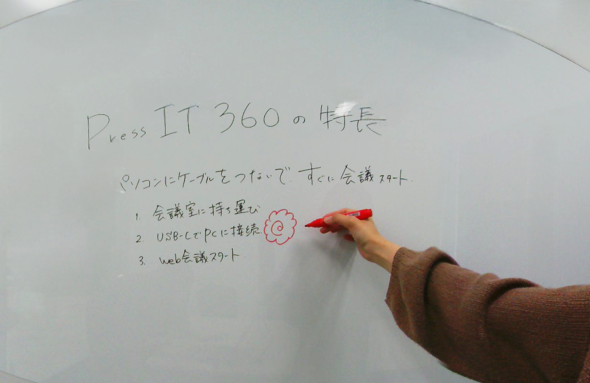 Press IT 360の特長
パソコンにケーブルをつないで、すぐに会議スタート
1. 会議室に持ち運び
2. USB-CでPCに接続
3. Web会議スタート